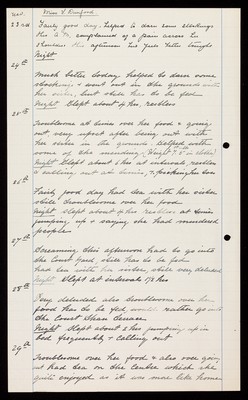 Nov. Miss V. Dunford
23rd Fairly good day, helped to darn some stockings
this a.m. complained of a pain across her
shoulders this afternoon has gone better tonight
Night
24th
Much better today helped to darn some
stockings & went out in the grounds with
her sister, but still has to be fed.
Night Slept about 4 hrs, restless
25th
Troublesome at times over her food & going
out, very upset after being out with
her sister in the grounds. Helped with
some of the mending
Night Slept about 6 hrs at intervals restless
& calling out at times, & for her son
26th
Fairly good day had tea with her sister
still troublesome over her food
Night Slept about 4 hrs restless at times
jumping up & saying she had murdered
people
27th
Screaming this afternoon had to go into
the Court Yard still has to be fed
had tea with her sister, still very deluded
Night Slept at intervals 7½ hrs
28th
Very deluded also troublesome over her
food has to be fed would rather go into
the Court than Terrace
Night Slept about 5 hrs jumping up in
bed frequently & calling out
29th
Troublesome over her food & also over going
out had tea on the Centre which she
quite enjoyed as it was more like home